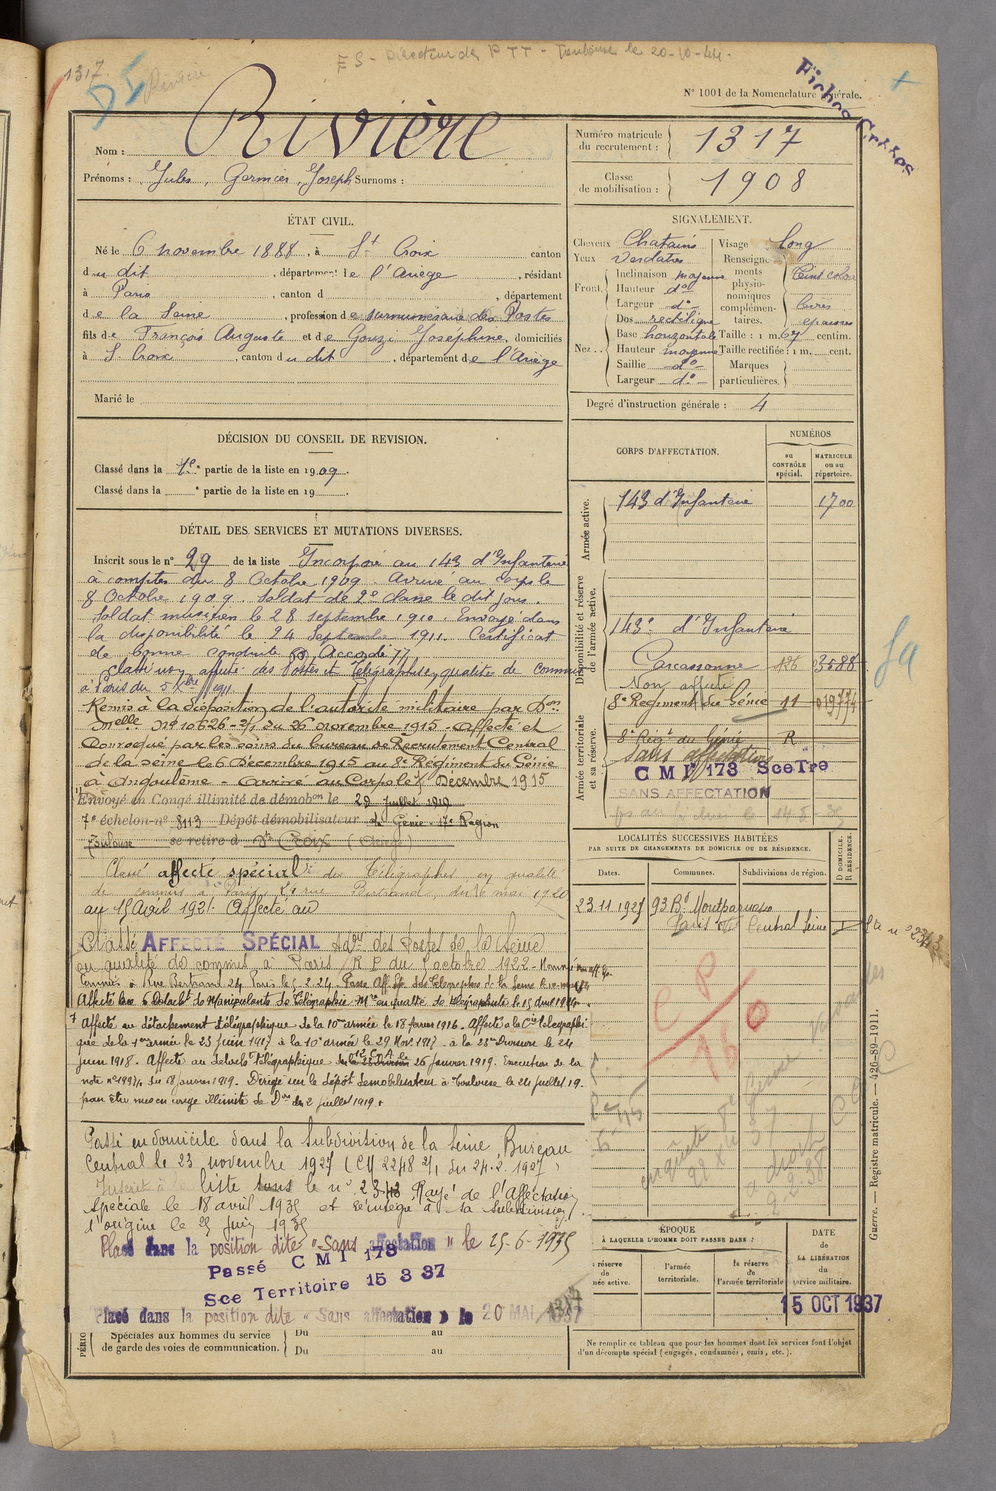 F S - Directeur des PTT - Toulouse le 20-10-44.
1317.
Rivière
Fiches Croisées
N° 1001 de la Nomenclature générale.
Nom : Rivière
Prénoms : Jules, Germier, Joseph Surnoms :
Numéro matricule du recrutement : 1317
Classe de mobilisation : 1908
ÉTAT CIVIL.
Né le 6 novembre 1888, à St Croix canton
du dit, département de l'Ariège, résidant
à Paris, canton d , département
de la Seine, profession de surnuméraire des Postes
fils de François Auguste et de Gouzi Joséphine, domiciliés
à St Croix, canton du dit, département de l'Ariège
Marié le
SIGNALEMENT.
Cheveux Chatains
Yeux Verdatres
Front. Inclinaison moyenne
Hauteur do
Largeur do
Nez.. Dos rectiligne
Base horizontale
Hauteur moyenne
Saillie do
Largeur do
Visage long
Renseignements physionomiques complémentaires.
Teint coloré
lèvres
épaisses
Taille : 1 m. 67 centim.
Taille rectifiée : 1 m. cent.
Marques particulières.
Degré d'instruction générale : 4
DÉCISION DU CONSEIL DE REVISION.
Classé dans la 1e partie de la liste en 1909.
Classé dans la e partie de la liste en 19 .
DÉTAIL DES SERVICES ET MUTATIONS DIVERSES.
Inscrit sous le n° 29 de la liste Incorporé au 143 d'Infanterie
à compter du 8 Octobre 1909. Arrivé au corps le
8 Octobre 1909. Soldat de 2e classe le dit jour.
Soldat musicien le 28 septembre 1910. Envoyé dans
la disponibilité le 24 Septembre 1911. Certificat
de bonne conduite Accordé
Classé non affecté des Postes et Télégraphes, qualité de commis
à Paris du 5 Xbre 1911
Remis à la disposition de l'autorité militaire par Don
Mnelle N° 10626-2/1 du 26 novembre 1915 - affecté et
convoqué par les soins du bureau de Recrutement Central
de la Seine le 6 Décembre 1915 au 8e Régiment du Génie
à Angoulême - arrivé au Corps le Décembre 1915
Envoyé en Congé illimité de démobon le 22 Juillet 1919
7e échelon-n° 8113 Dépôt démobilisateur du Génie - 17e Région
Toulouse se retire à Ste Croix (Ariège)
Classé affecté spécial des Télégraphes en qualité
de commis à Paris, 24 rue Bertrand, du 16 mai 1920
au 15 Avril 1921. Affecté au
Classé AFFECTÉ SPÉCIAL Adon des Postes de la Seine
en qualité de commis à Paris R P du 1 octobre 1922
Affecté au détachement télégraphique de la 10e armée le 18 février 1916. Affecté à la Cie télégraphi
que de la 1ère armée le 23 Juin 1917 à la 10e armée le 29 Nov. 1917 - à la 23e Division le 24
Juin 1918. Affecté au détacht télégraphique 26 janvier 1919. Exécution de la
note n° 1997/4 du 18 janvier 1919. Dirigé sur le dépôt démobilisateur à Toulouse le 21 juillet 19
pour être mis en congé illimité de Don du 2 juillet 1919.
Passé en domicile dans la Subdivision de la Seine, Bureau
Central le 23 novembre 1927 (CM 2248 2/1 du 24.2.1927)
liste sous le n° 2343 Rayé de l'Affectation
Spéciale le 18 avril 1935 et réintégré à sa Subdivision
d'origine le 25 juin 1935
Placé dans la position dite "Sans affectation" le 25-6-1935
Passé C M I 173
Sce Territoire 15 3 37
Placé dans la position dite "Sans affectation" le 20 MAI 1937
1317
Spéciales aux hommes du service de garde des voies de communication.
Du au
Du au
CORPS D'AFFECTATION.
NUMÉROS
au CONTRÔLE spécial.
MATRICULE ou au répertoire.
Armée active.
143 d'Infanterie 1700
Disponibilité et réserve de l'armée active.
143e d'Infanterie
Carcassonne 126 3588
Non affecté
8e Régiment du Génie 11 019774
Armée territoriale et sa réserve.
8e Régt du Génie R
Sans affectation
C M I 173 Sce Tre
SANS AFFECTATION
LOCALITÉS SUCCESSIVES HABITÉES
PAR SUITE DE CHANGEMENTS DE DOMICILE OU DE RÉSIDENCE.
Dates. Communes. Subdivisions de région. D DOMICILE. R RÉSIDENCE.
23.11.1927 93 Bd Montparnasse
Paris Central Seine D
C P
160
ÉPOQUE
À LAQUELLE L'HOMME DOIT PASSER DANS :
réserve de armée active.
l'armée territoriale.
la réserve de l'armée territoriale
DATE de LA LIBÉRATION du service militaire.
15 OCT 1937
Ne remplir ce tableau que pour les hommes dont les services font l'objet
d'un décompte spécial (engagés, condamnés, omis, etc.).
Guerre. — Registre matricule. — 426-89-1911.